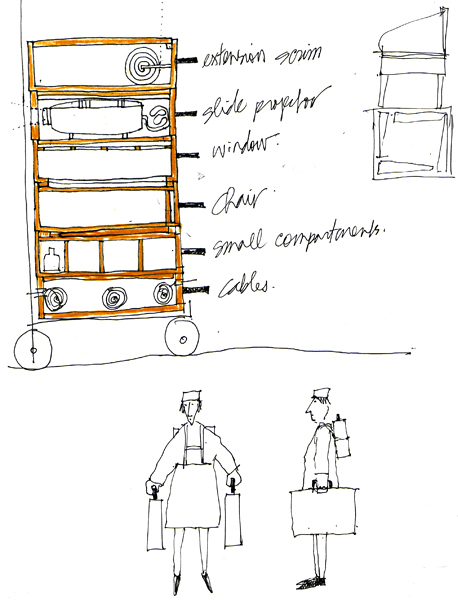 extension scrim
slide projector
window.
chair.
small compartments.
cables.